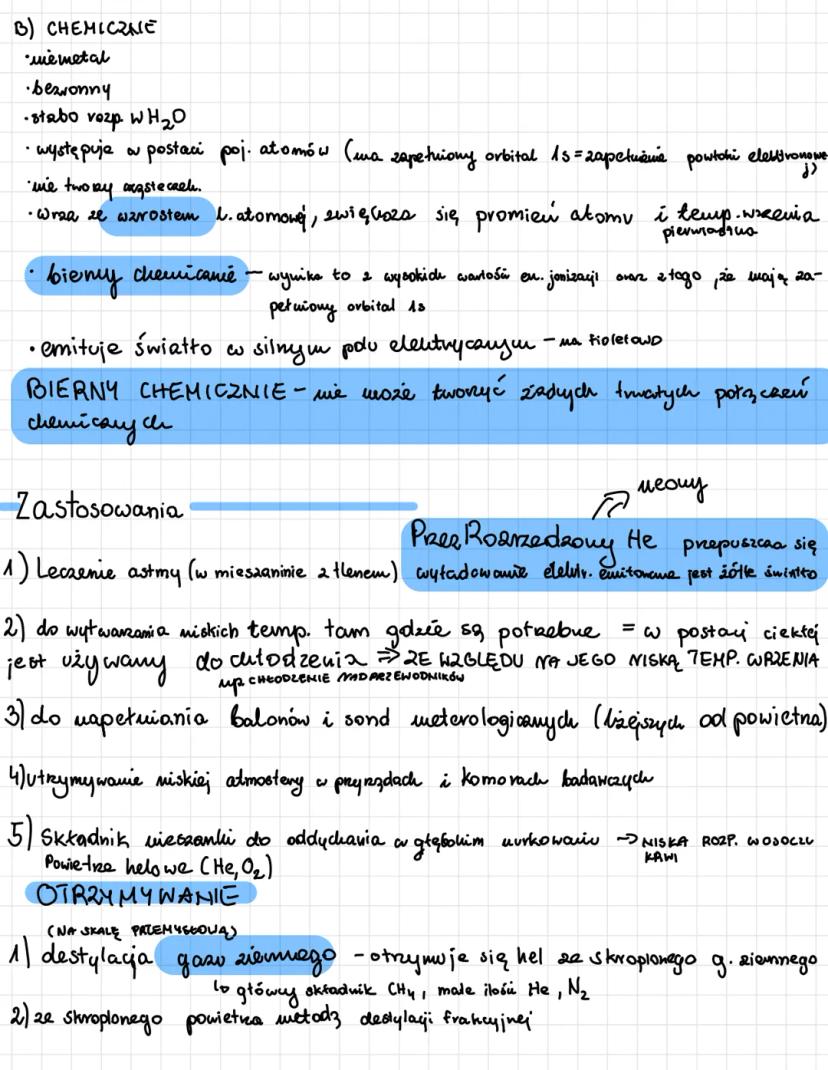 B) CHEMICZNE
·niemetal
·bezwonny
·słabo rozp. w H2O
·występuje w postaci poj. atomów (ma zapełniony orbital 1s = zapełnienie powłoki elektronowe
j)
·nie tworzy cząsteczek.
·wraz ze wzrostem l. atomowej, zwiększa się promień atomu i temp. wrzenia
pierwiastka
·bierny chemicznie – wynika to z wysokich wartości en. jonizacji oraz z tego, że mają za-
pełniony orbital 1s
·emituje światło w silnym polu elektrycznym – na fioletowo
BIERNY CHEMICZNIE – nie może tworzyć żadnych trwałych połączeń
chemicznych
neony
Zastosowania
Przez Rozrzedzony He przepuszcza się
1) Leczenie astmy (w mieszaninie z tlenem) wyładowanie elektr. emitowane jest żółte światło
2) do wytwarzania niskich temp. tam gdzie są potrzebne = w postaci ciekłej
jest używany do chłodzenia ⇒ ZE WZGLĘDU NA JEGO NISKĄ TEMP. WRZENIA
np CHŁODZENIE NADPRZEWODNIKÓW
3) do napełniania balonów i sond meterologicznych (lżejszych od powietrza)
4) utrzymywanie niskiej atmosfery w przyrządach i komorach badawczych
5) Składnik mieszanki do oddychania w głębokim nurkowaniu → NISKA ROZP. W OSOCZU
KRWI
Powietrze helowe (He, O2)
OTRZYMYWANIE
(NA SKALĘ PRZEMYSŁOWĄ)
1) destylacja gazu ziemnego – otrzymuje się hel ze skroplonego g. ziemnego
↳ główny składnik CH4, małe ilości He, N2
2) ze skroplonego powietrza metodą destylacji frakcyjnej